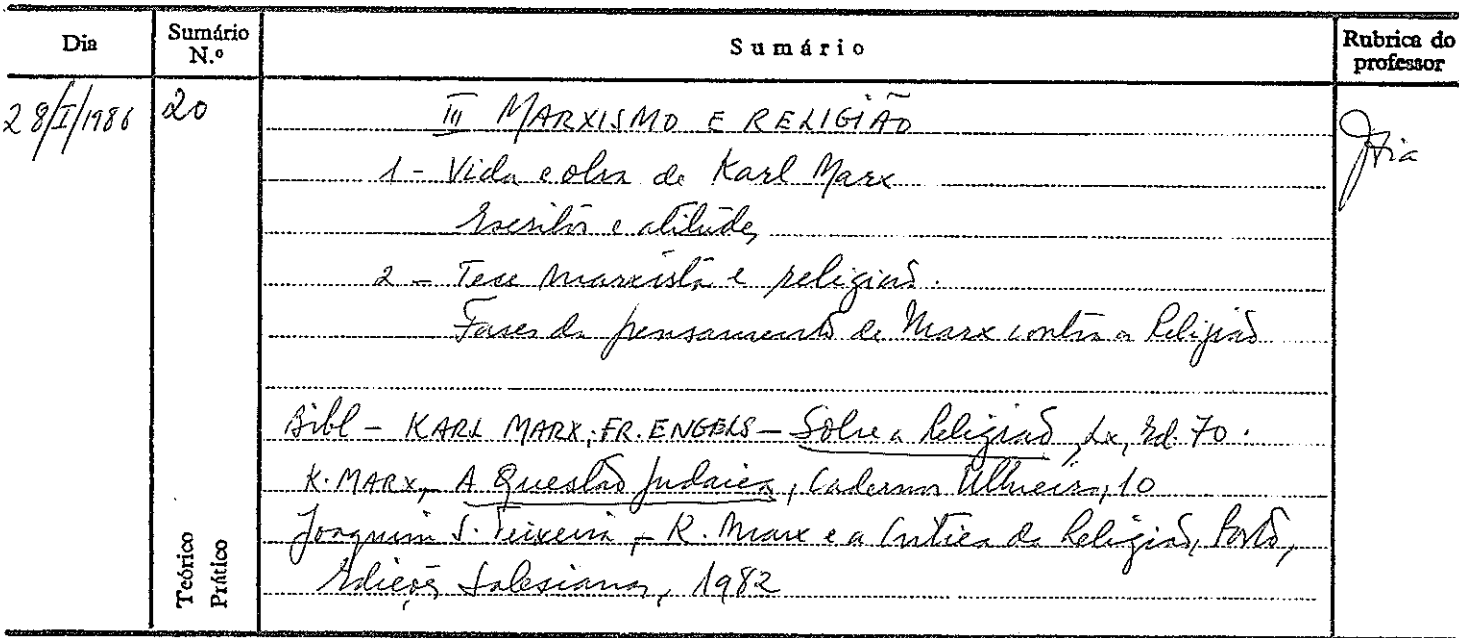 Dia Sumário N.º Sumário Rubrica do professor
28/I/1986 20 III MARXISMO E RELIGIÃO
1 - Vida e obra de Karl Marx
Escritos e atitudes
2 - Tese marxista e religião.
Fases do pensamento de Marx contra a Religião
Bibl - KARL MARX, FR. ENGELS - Sobre a Religião, Lx, Ed. 70.
K. MARX, A Questão Judaica, Cadernos Ulmeiro, 10
Joaquim S. Teixeira, - K. Marx e a Crítica da Religião, Porto,
Edições Salesianas, 1982
Teórico
Prático